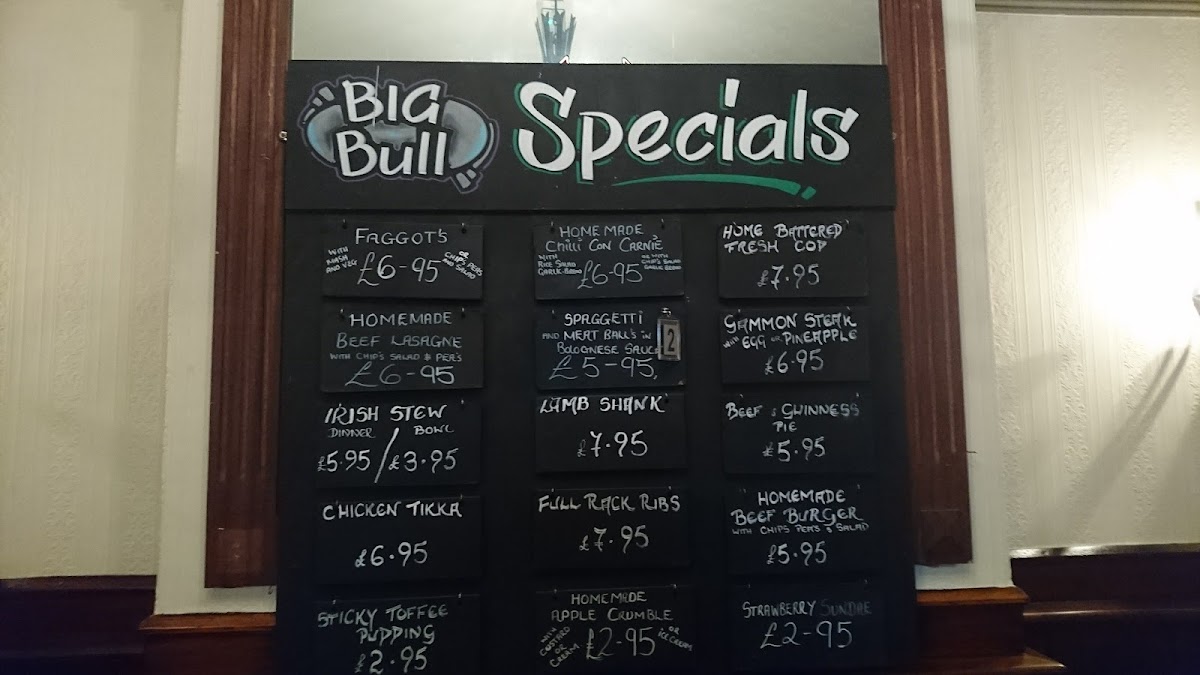 BIG
BULL
Specials
FAGGOT'S
WITH
MASH
AND VEG
£6-95
OR
CHIPS PEAS
AND SALAD
HOMEMADE
CHilli CON CARNIE
WITH
RICE SALAD
GARLIC-BREAD
£6-95
OR WITH
CHIP'S SALAD
GARLIC BREAD
HOME BATTERED
FRESH COD
£7.95
HOMEMADE
BEEF LASAGNE
WITH CHIP'S SALAD & PEA'S
£6-95
SPAGGETTI
AND MEAT BALL'S IN
BOLOGNESE SAUCE
£5-95.
2
GAMMON STEAK
WITH EGG OR PINEAPPLE
£6.95
IRISH STEW
DINNER / BOWL
£5.95 / £3.95
LAMB SHANK
£7.95
BEEF & GUINNESS
PIE
£5.95
CHICKEN TIKKA
£6.95
FULL RACK RIBS
£7.95
HOMEMADE
BEEF BURGER
WITH CHIPS PEA'S & SALAD
£5.95
STICKY TOFFEE
PUDDING
£2.95
HOMEMADE
APPLE CRUMBLE
WITH
CUSTARD
OR
CREAM
£2-95
OR
ICE CREAM
STRAWBERRY SUNDAE
£2-95